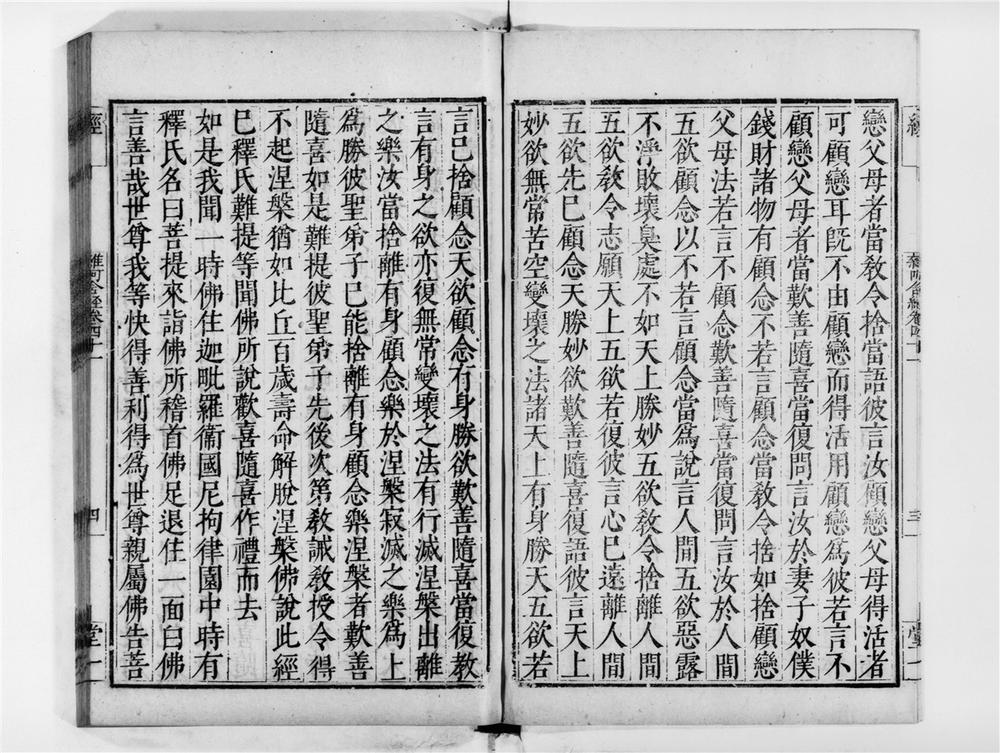 戀父母者當敎令捨當語彼言汝顧戀父母得活者
可顧戀耳旣不由顧戀而得活用顧戀爲彼若言不
顧戀父母者當歎善隨喜當復問言汝於妻子奴僕
錢財諸物有顧念不若言顧念當敎令捨如捨顧戀
父母法若言不顧念歎善隨喜當復問言汝於人間
五欲顧念以不若言顧念當爲說言人間五欲惡露
不淨敗壞臭處不如天上勝妙五欲敎令捨離人間
五欲敎令志願天上五欲若復彼言心已遠離人間
五欲先已顧念天勝妙欲歎善隨喜復語彼言天上
妙欲無常苦空變壞之法諸天上有身勝天五欲若
言已捨顧念天欲顧念有身勝欲歎善隨喜當復敎
言有身之欲亦復無常變壞之法有行滅涅槃出離
之樂汝當捨離有身顧念樂於涅槃寂滅之樂爲上
爲勝彼聖弟子已能捨離有身顧念樂涅槃者歎善
隨喜如是難提彼聖弟子先後次第敎誡敎授令得
不起涅槃猶如比丘百歲壽命解脫涅槃佛說此經
已釋氏難提等聞佛所說歡喜隨喜作禮而去
如是我聞一時佛住迦毗羅衞國尼拘律園中時有
釋氏名曰菩提來詣佛所稽首佛足退住一面白佛
言善哉世尊我等快得善利得爲世尊親屬佛告菩
經
雜阿含經卷四十一
四
堂